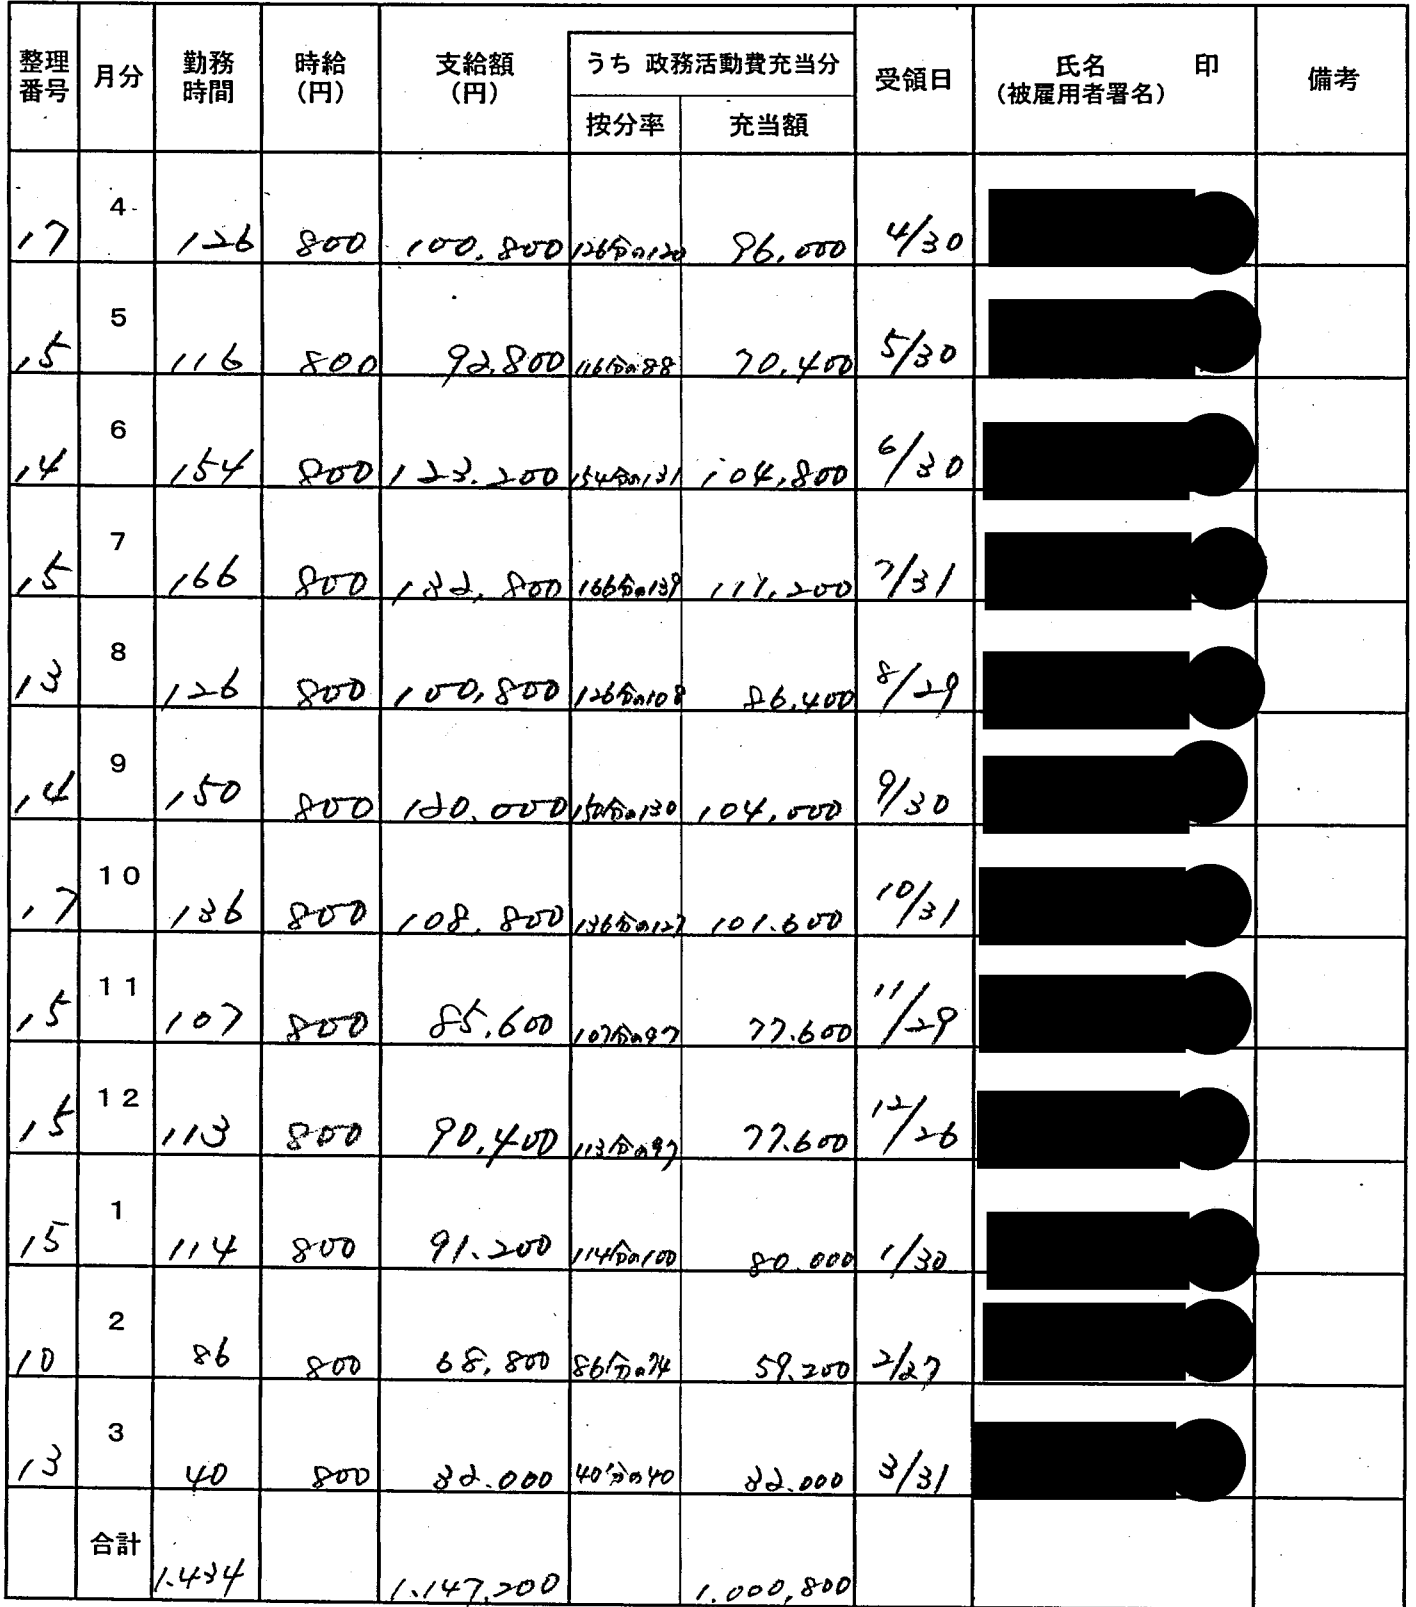 整理番号 月分 勤務時間 時給(円) 支給額(円) うち 政務活動費充当分 按分率 充当額 受領日 氏名(被雇用者署名) 印 備考
17 4 126 800 100,800 126分の120 96,000 4/30
15 5 116 800 92,800 116分の88 70,400 5/30
14 6 154 800 123,200 154分の131 104,800 6/30
15 7 166 800 132,800 166分の139 111,200 7/31
13 8 126 800 100,800 126分の108 86,400 8/29
14 9 150 800 120,000 150分の130 104,000 9/30
17 10 136 800 108,800 136分の127 101,600 10/31
15 11 107 800 85,600 107分の97 77,600 11/29
15 12 113 800 90,400 113分の97 77,600 12/26
15 1 114 800 91,200 114分の100 80,000 1/30
10 2 86 800 68,800 86分の74 59,200 2/27
13 3 40 800 32,000 40分の40 32,000 3/31
合計 1,434 1,147,200 1,000,800